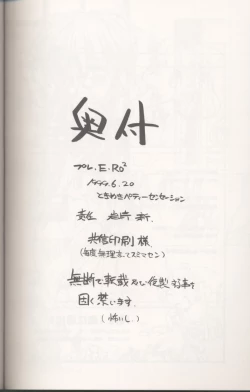 奥付
プレ.E.Ro²
1999.6.20
ときめきパティーセンセーション
責任
共信印刷 様
(毎度無理言ってスミマセン)
無断で転載ならび複製する事を
固く禁じます。
(怖いし。)